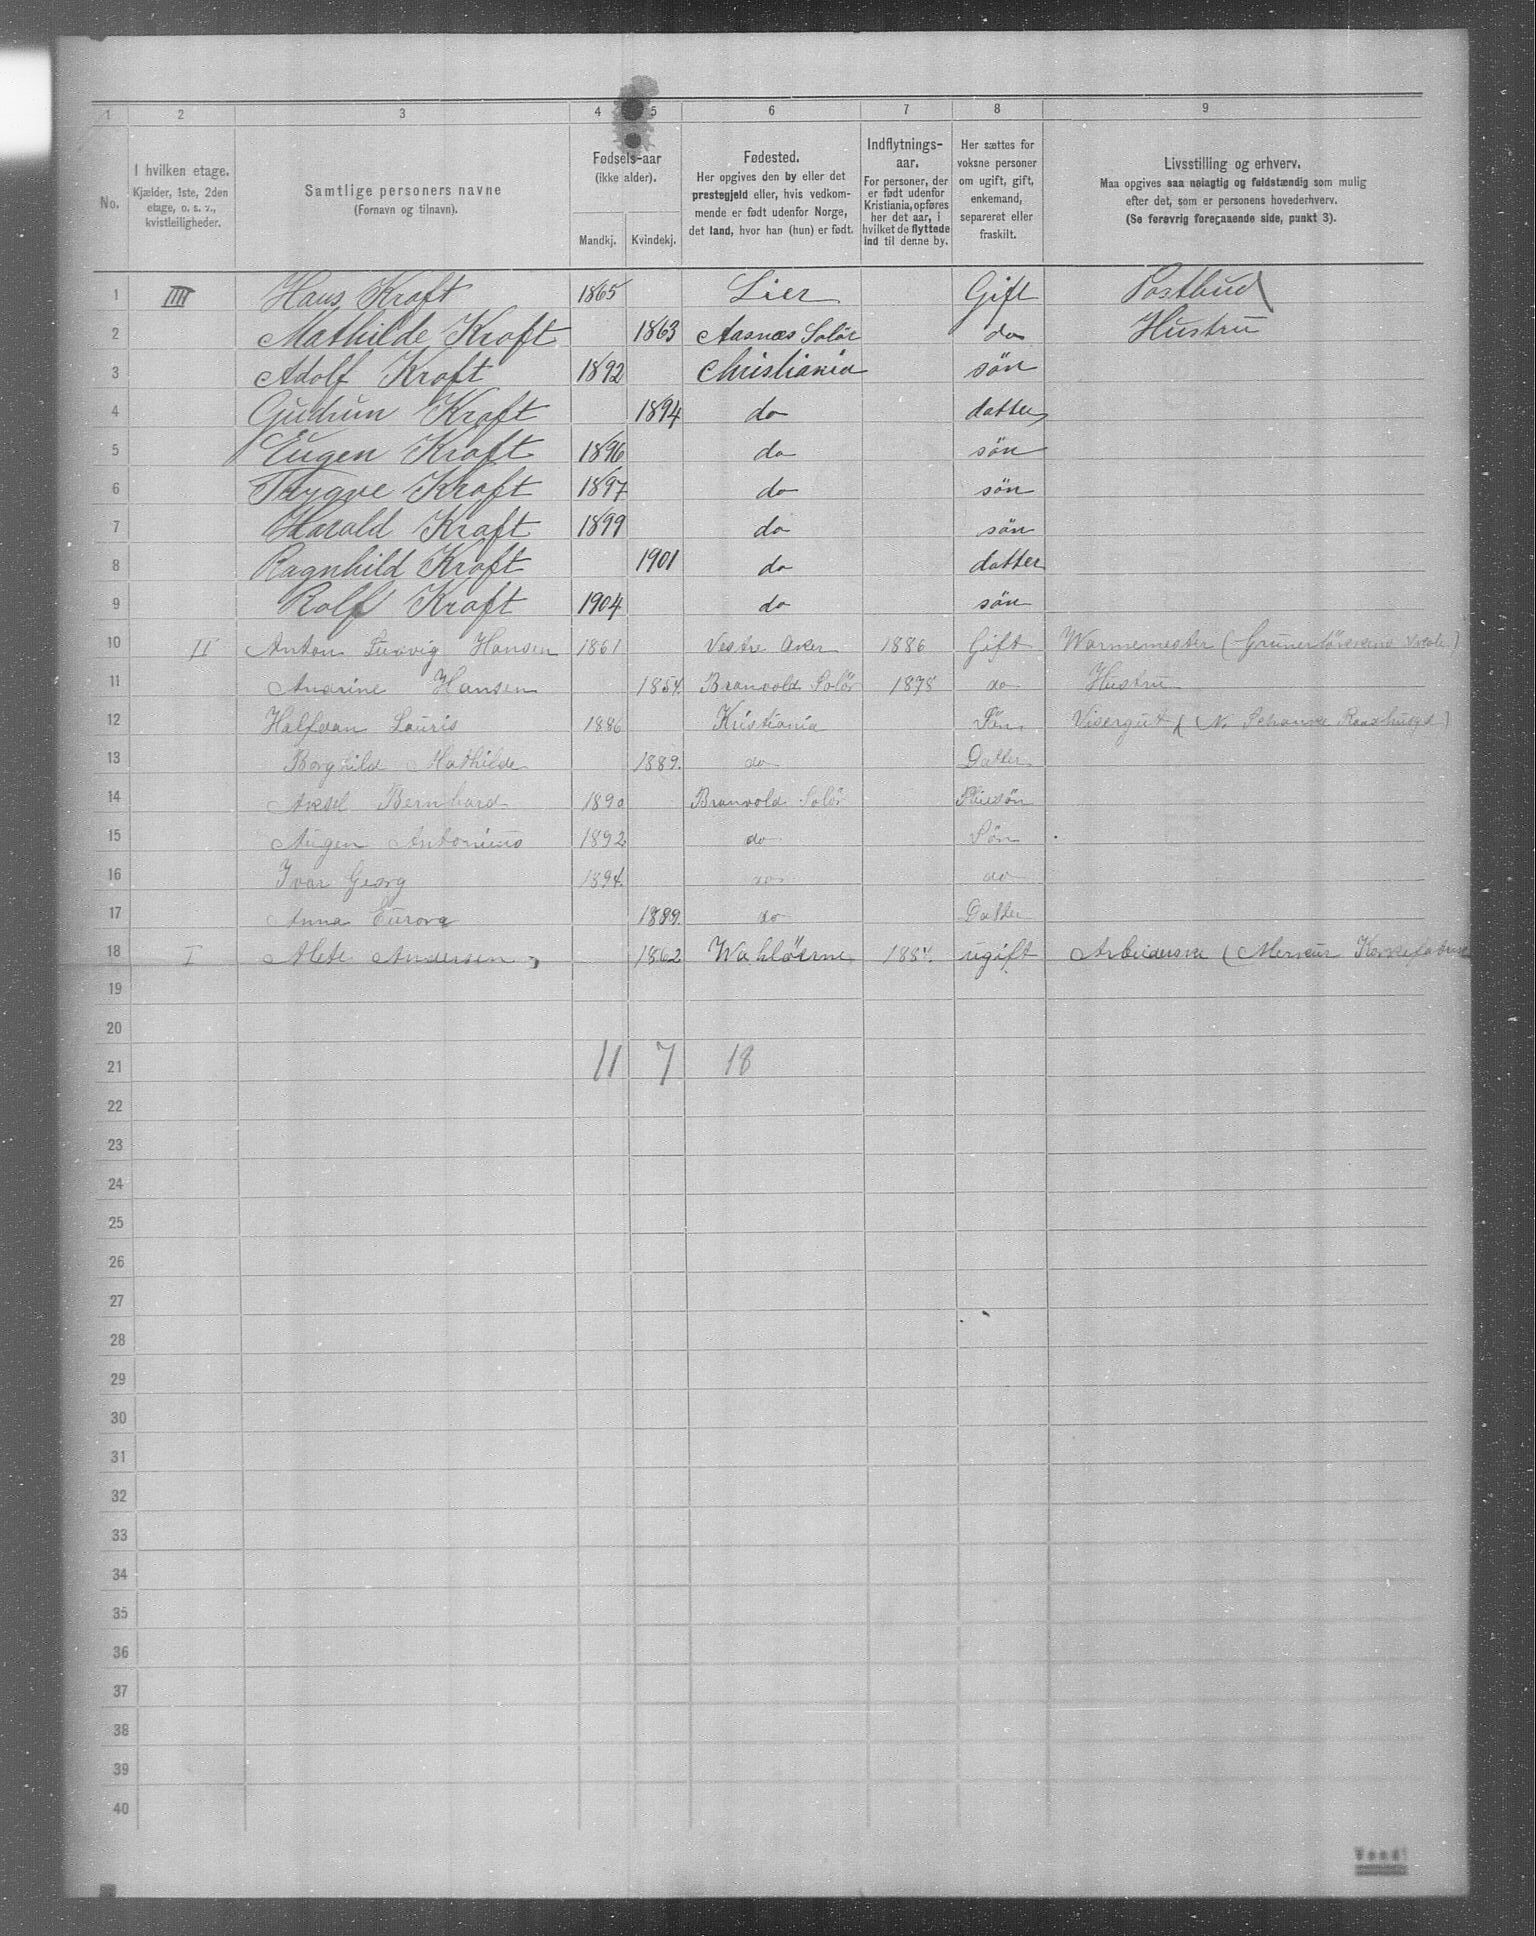 1 2 3 4 5 6 7 8 9
No.
I hvilken etage.
Kjælder, 1ste, 2den
etage, o. s. v.,
kvistleiligheder.
Samtlige personers navne
(Fornavn og tilnavn).
Fødsels-aar
(ikke alder).
Mandkj. Kvindekj.
Fødested.
Her opgives den by eller det
prestegjeld eller, hvis vedkom-
mende er født udenfor Norge,
det land, hvor han (hun) er født.
Indflytnings-
aar.
For personer, der
er født udenfor
Kristiania, opføres
her det aar, i
hvilket de flyttede
ind til denne by.
Her sættes for
voksne personer
om ugift, gift,
enkemand,
separeret eller
fraskilt.
Livsstilling og erhverv.
Maa opgives saa nøiagtig og fuldstændig som mulig
efter det, som er personens hovederhverv.
(Se forøvrig foregaaende side, punkt 3).
1 IIII Hans Kraft 1865 Lier Gift Postbud
2 Mathilde Kraft 1863 Aasnæs Solör do Hustru
3 Adolf Kraft 1892 Christiania sön
4 Gudrun Kraft 1894 do datter
5 Eugen Kraft 1896 do sön
6 Trygve Kraft 1897 do sön
7 Harald Kraft 1899 do sön
8 Ragnhild Kraft 1901 do datter
9 Rolf Kraft 1904 do sön
10 II Anton Ludvig Hansen 1861 Vestre Aker 1886 Gift Warmemester (
11 Andrine Hansen 1854. Branvold Solör 1878 do Hustru
12 Halfdan Lauris 1886 Kristiania Sön Visergut (N. Schanke Raadhusgd)
13 Borghild Mathilde 1889. do Datter
14 Aksel Bernhard 1890 Branvold Solör Pleiesön
15 Augen Antonius 1892 do Sön
16 Ivar Georg 1894. do do
17 Anna 1889. do Datter
18 I Alete Andersen 1862 1884. ugift Arbeiderske (Merkur
19
20
21 11 7 18
22
23
24
25
26
27
28
29
30
31
32
33
34
35
36
37
38
39
40
Vend!